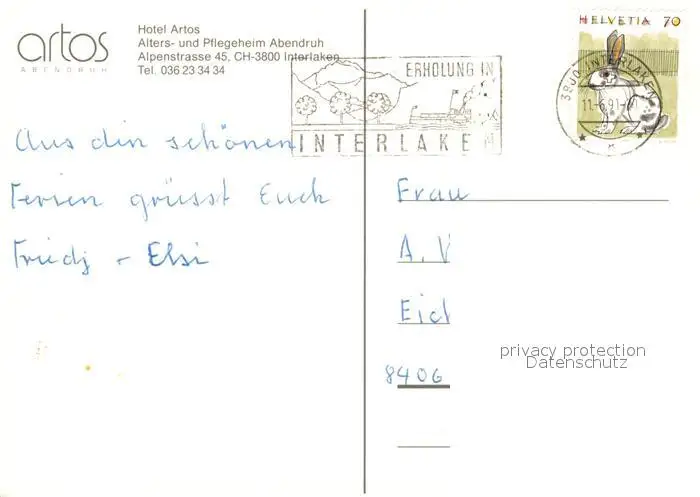 artos
ABENDRUH
Hotel Artos
Alters- und Pflegeheim Abendruh
Alpenstrasse 45, CH-3800 Interlaken
Tel. 036 23 34 34
HELVETIA 70
ERHOLUNG IN
INTERLAKEN
3800 INTERLAKEN
11.-6.91.-
Aus din schönen
Ferien grüsst Euch
Friedj - Elsi
Frau
A. V
Eich
8406
privacy protection
Datenschutz